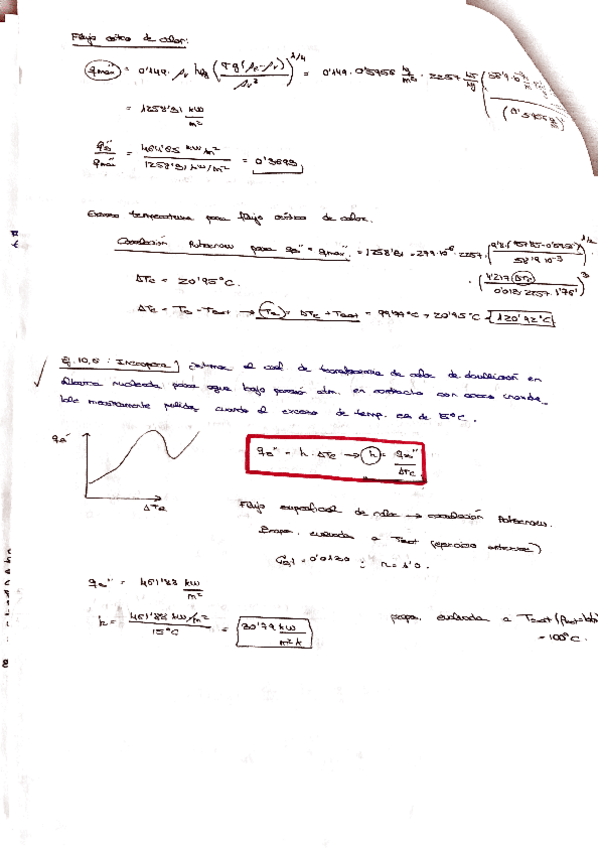 Flujo crítico de calor:
q''máx = 0'149 · ρv hfg (σg(ρl-ρv)/ρv²)^1/4 = 0'149 · 0'5956 kg/m³ · 2257 kJ/kg
= 1258'31 kW/m²
q''s/q''máx = 464'65 kW/m² / 1258'31 kW/m² = 0'3693
Exceso temperatura para flujo crítico de calor.
Correlación Rohsenow para q''s = q''máx = 1258'31 = 279·10⁻⁶ · 2257 ·
ΔTe = 20'95°C.
ΔTe = Ts - Tsat → Ts = ΔTe + Tsat = 99'97°C + 20'95°C = 120'92°C
Ej. 10,5 : Incropera] Estimar el coef de transferencia de calor de ebullición en
alberca nucleada para agua bajo presión atm. en contacto con acero inoxida
ble mecánicamente pulido, cuando el exceso de temp. es de 15°C.
qs''
ΔTe
qs'' = h · ΔTe → h = qs''/ΔTe
Flujo superficial de calor → correlación Rohsenow.
Propn. evaluada a Tsat (ejercicio anterior)
Cs,l = 0'0130 n = 1'0.
qs'' = 461'88 kW/m²
h = 461'88 kW/m² / 15°C = 30'79 kW/m²K
propn. evaluada a Tsat
= 100°C.